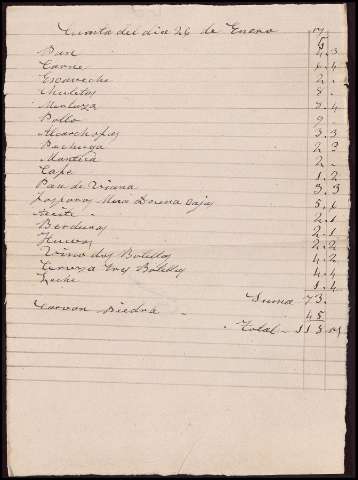 Cuenta del dia 26 de Enero
Pan 4. 3
Carne 6. 4
Escaveche 2.
Chuletas 8.
Merluza 7. 4
Pollo 9
Alcarchofas 3. 3
Pechuga 2
Manteca 2
Cafe 1. 2
Pan de Viana 3. 3
Fosforos Una Docena Cajas 5. 6
Aceite 2. 1
Berduras 2. 1
Huevos 2. 2
Vino dos Botellas 4. 2
Cerveza tres Botellas 4. 4
Leche 1. 4
Suma 73.
Carvon Piedra 45
Total 113